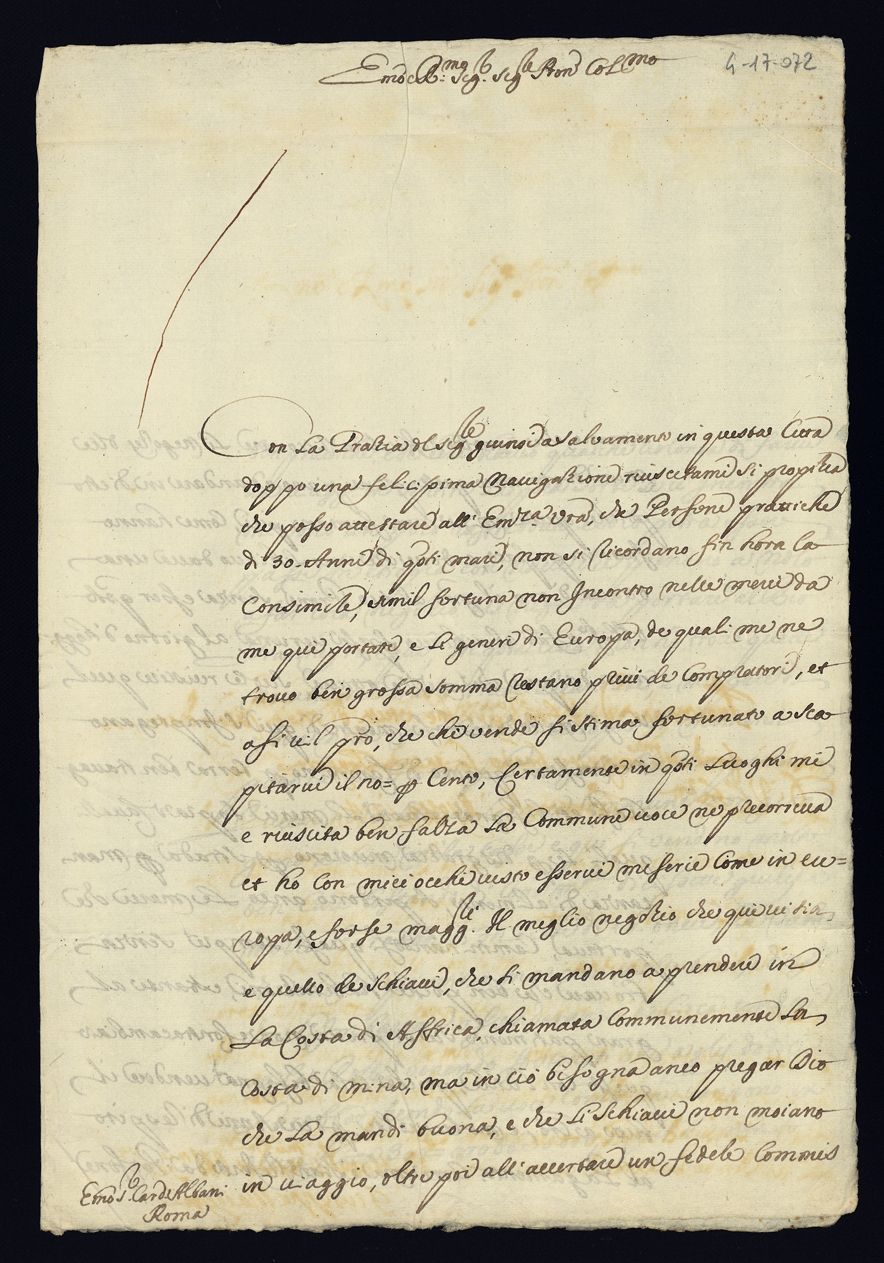 Emo e R:mo Sig.r Sig.re Pron Col.mo
4-17-072
Con la Grazia del Sig.re giunsi a salvamento in questa Città
doppo una felicissima Navigazione riuscitami si propizia
che posso attestare all' Em.za Vra, che Persone prattiche
di 30. Anni di qsti mari, non si ricordano fin hora la
Consimile, simil fortuna non Incontro nelle merci da
me qui portate, e li generi di Europa, de quali me ne
trovo ben grossa somma restano privi de Compratori, et
a si vil pro, che chi vende si stima fortunato a sca
pitarvi il 10= p Cento, Certamente in qsti Luoghi mi
e riuscita ben falza La Commune voce ne precorreva
et ho Con miei occhi visto esservi miserie Come in Eu=
ropa, e forse magg.ri. Il meglio negozio che qui vi sia
e quello de Schiavi, che si mandano a prendere in
La Costa di Affrica, chiamata Communemente La
Costa di Mina, ma in ciò bisogna anco pregar Dio
che La mandi buona, e che Li Schiavi non moiano
in viaggio, oltre poi all' accertare un fedele Commis
Emo S.r Card Albani
Roma